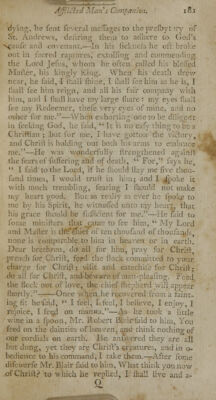 Afflicted Man's Companion. 181
dying, he sent several messages to the presbytery of
St. Andrews, desiring them to adhere to God's
cause and covenant.—In his sickness he oft broke
out in sacred raptures, extolling and commending
the Lord Jesus, whom he often called his blessed
Master, his kingly King. When his death drew
near, he said, I shall shine, I shall see him as he is, I
shall see him reign, and all his fair company with
him, and I shall have my large share: my eyes shall
see my Redeemer, these very eyes of mine, and no
other for me."—When exhorting one to be diligent
in seeking God, he said, "It is no easy thing to be a
Christian; but for me, I have gotten the victory,
and Christ is holding out both his arms to embrace
me."—He was wonderfully strengthened against
the fears of suffering and of death. "For," says he,
"I said to the Lord, if he should slay me five thou-
sand times, I would trust in him; and I spoke it
with much trembling, fearing I should not make
my heart good. But as really as ever he spoke to
me by his Spirit, he witnessed unto my heart, that
his grace should be sufficient for me."—He said to
some ministers that came to see him, "My Lord
and Master is the chief of ten thousand of thousands,
none is comparable to him in heaven or in earth.
Dear brethren, do all for him, pray for Christ,
preach for Christ, feed the flock committed to your
charge for Christ; visit and catechize for Christ;
do all for Christ, and beware of men-pleasing. Feed
the flock out of love, the chief shepherd will appear
shortly."—Once when he recovered from a faint-
ing fit he said, "I feel, I feel, I believe, I enjoy, I
rejoice, I feed on manna."—As he took a little
wine in a spoon, Mr. Robert Blair said to him, You
feed on the dainties of heaven, and think nothing of
our cordials on earth. He answered they are all
but dung, yet they are Christ's creatures, and in o-
bedience to his command, I take them.—After some
discourse Mr. Blair said to him, What think you now
of Christ? to which he replied, I shall live and a-
Q